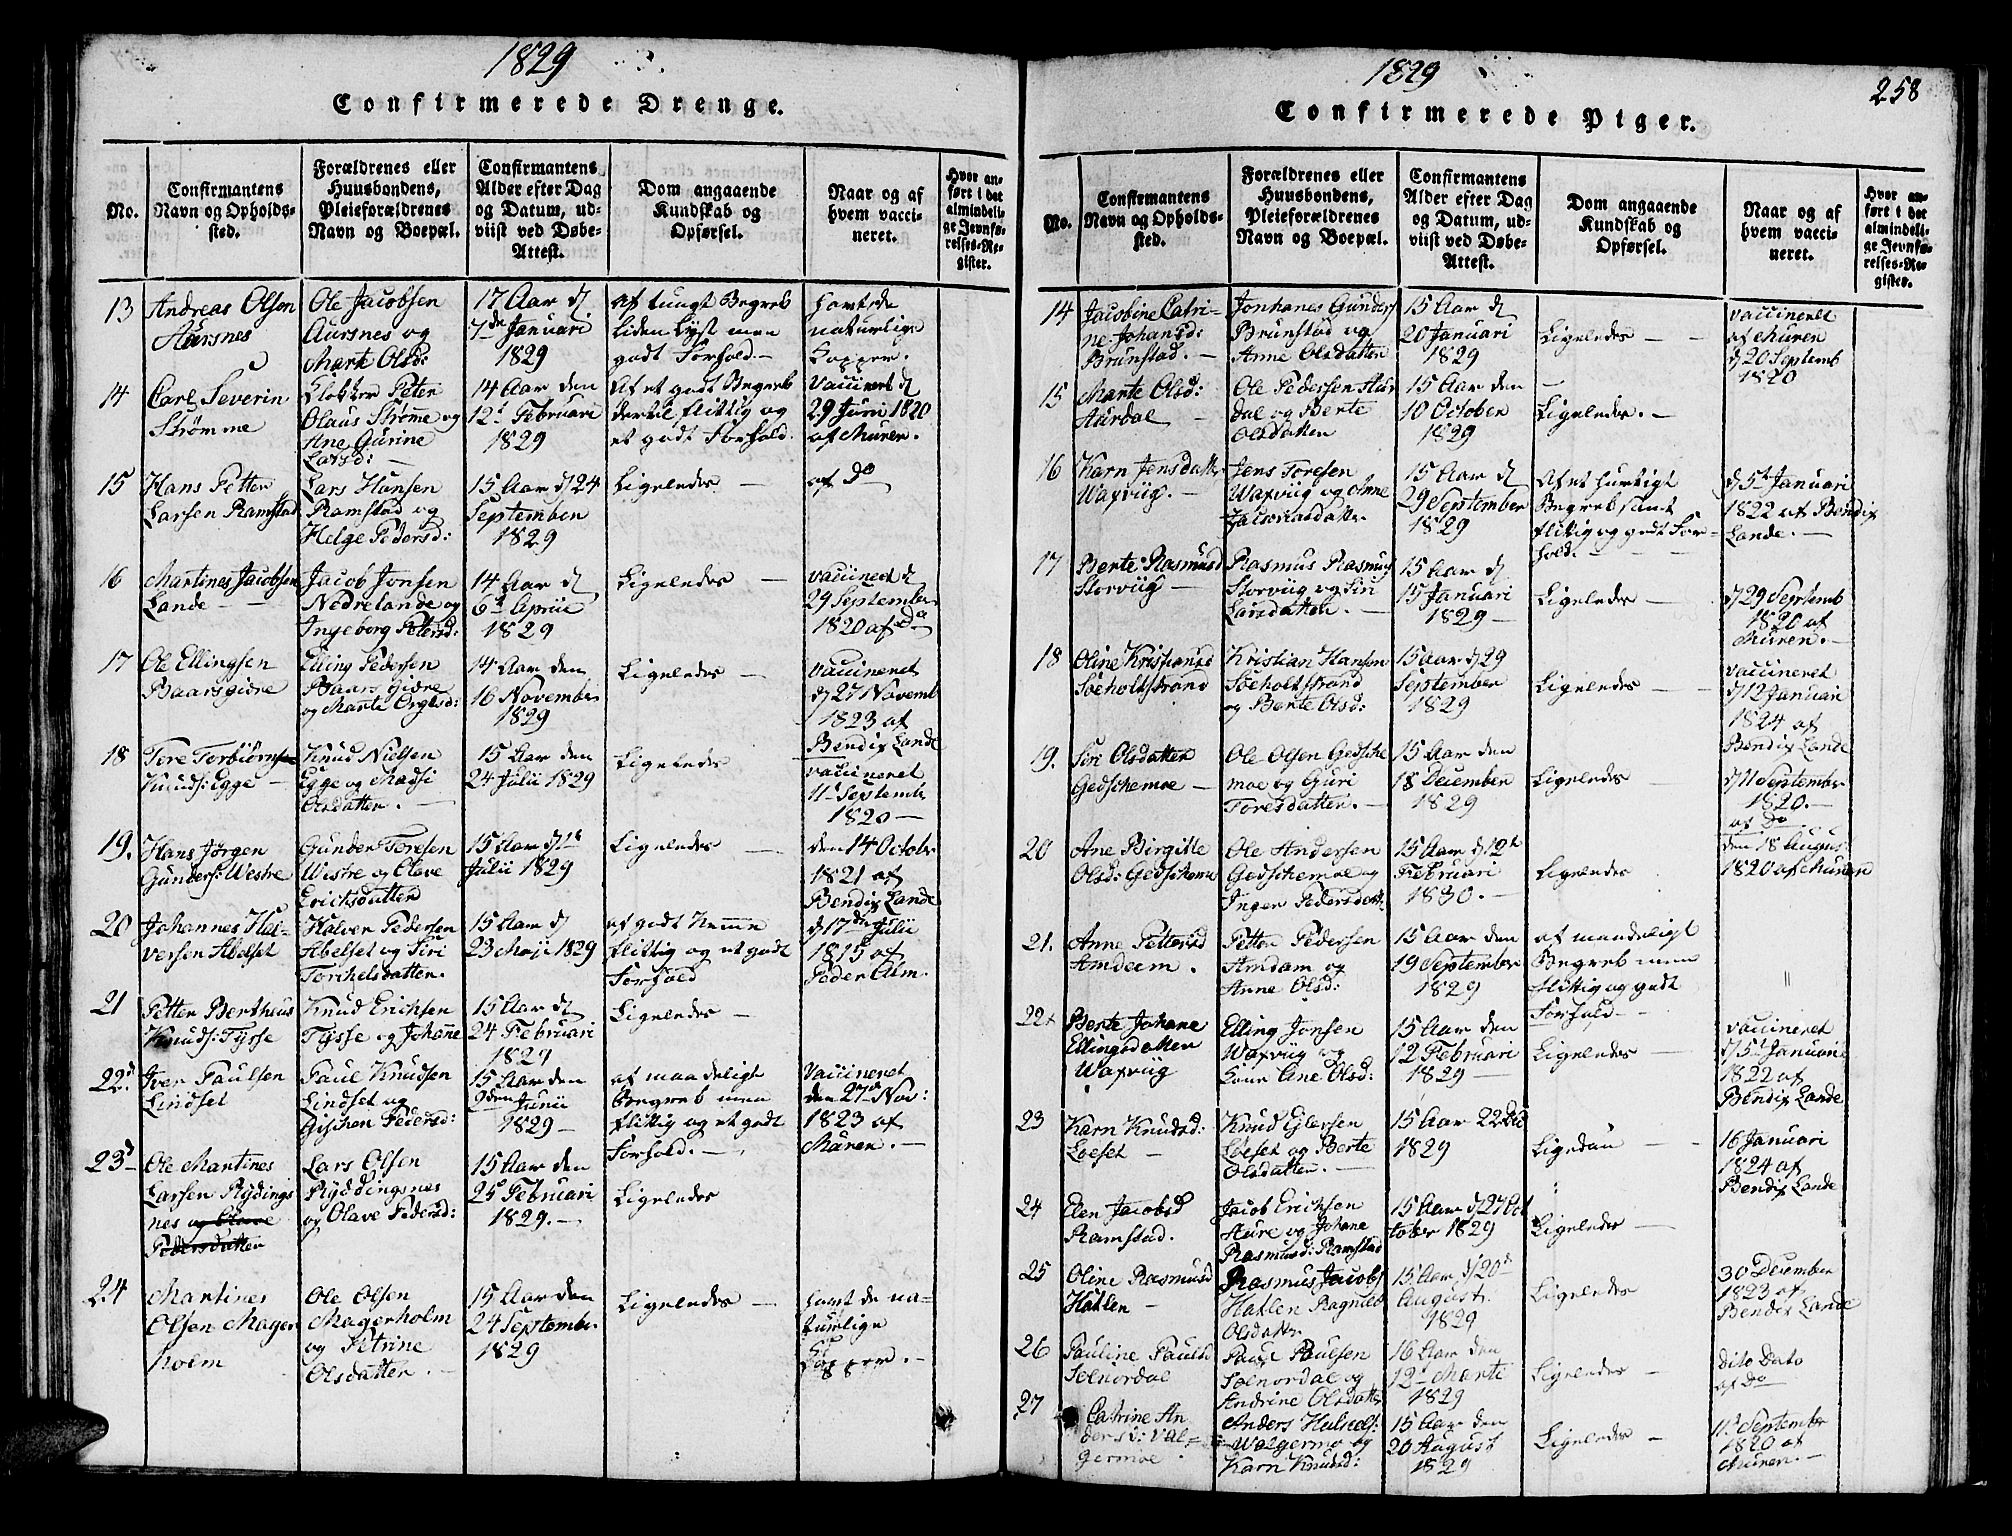 1829
Confirmerede Drenge.
No.
Confirmantens
Navn og Opholds-
sted.
Forældrenes eller
Huusbondens,
Pleieforældrenes
Navn og Boepæl.
Confirmantens
Alder efter Dag
og Datum, ud-
viist ved Døbe-
Attest.
Dom angaaende
Kundskab og
Opførsel.
Naar og af
hvem vacci-
neret.
Hvor an-
ført i det
almindeli-
ge Jevnfø-
relses-Re-
gister.
13
Andreas Olsen
Aursnes
Ole Jacobsen
Aursnes og
Marte Olsd:
17 Aar d
7de Januari
1829
af tungt Begreb
liden Lyst men
godt Forhold –
havt de
naturlige
Kopper.
14
Carl Severin
Strømme
Klokker Peter
Olaus Strøme og
Ane Gurine
Larsd: –
14 Aar den
12t Februari
1829
Af et godt Begreb
dertil flittig og
et godt Forhold.
Vaccinert d
29 Juni 1820
af Muren.
15
Hans Petter
Larsen Ramstad
Lars Hansen
Ramstad og
Helge Pedersd:
15 Aar d 24
September
1829
Ligeledes –
af Do
16
Martines Jacobsen
Lande – –
Jacob Jonsen
Nedrelande og
Ingeborg Petersd:
14 Aar d
6t April
1829
Ligeledes –
vaccineret d
29 September
1820 af Do
17
Ole Ellingsen
Baarsgiære
Elling Pedersen
Baars Giære
og Marte Ørgesd:
14 Aar den
16 November
1829
Ligeledes –
Vaccineret
d 27 Novemb
1823 af
Bendix Lande
18
Tore Torbiørnsen
Knuds: Egge –
Knud Nielsen
Egge og Madsi
Olsdatter. –
15 Aar den
24 Julii 1829
Ligeledes
vaccineret
11t Septemb
1820 –
19.
Hans Jørgen
Gunders: Westre
Gunder Toresen
Westre og Olave
Ericksdatter
15 Aar d 18
Julii 1829
Ligeledes –
den 14 Octobr
1821 af
Bendix Lande
20
Johannes Hal-
versen Abelset
Halver Pedersen
Abelset og Siri
Torchelsdatter.
15 Aar d
23 Maji 1829
af godt Nemme
flittig og et godt
Forhold
d 17de Julii
1815 af
Peder Alm.
21
Petter Bertheus
Knuds: Tysse
Knud Erichsen
Tysse og Johane
15 Aar d
24 Februari
1829
Ligeledes –
22
Iver Paulsen
Lindset
Paul Knudsen
Lindset og
Gischen Pedersd:
15 Aar den
9den Junii
1829 –
af maadeligt
Begreb men
flittig og et godt
Forhold. –
Vaccineret
den 27d Nov:
1823 af
Muren. –
23
Ole Martines
Larsen Rydings
nes og Olave
Pedersdatter
Lars Olsen
Ryddingsnes
og Olave Pedersd:
15 Aar den
25t Februari
1829. –
Ligeledes
24
Martines
Olsen Mager
holm
Ole Olsen
Magerholm
og Petrine
Olsdatter –
15 Aar den
24 September
1829
Ligeledes –
havt de na-
turlige
Kopper. –
1829
258
Confirmerede Piger.
No.
Confirmantens
Navn og Opholds-
sted.
Forældrenes eller
Huusbondens,
Pleieforældrenes
Navn og Boepæl.
Confirmantens
Alder efter Dag
og Datum, ud-
viist ved Døbe-
Attest.
Dom angaaende
Kundskab og
Opførsel.
Naar og af
hvem vacci-
neret.
Hvor an-
ført i det
almindeli-
ge Jevnfø-
relses-Re-
gister.
14
Jacobine Catri-
ne Johansd:
Brunstad. –
Jonhanes Gunders
Brunstad og
Anne Olsdatter
15 Aar d
20 Januari
1829
Ligeledes – –
vaccineret
af Muren
d 20 Septemb
1820
15
Marte Olsd:
Aurdal –
Ole Pedersen Aur
dal og Berte
Olsdatter
15 Aar den
10 October
1829
–
Ligeledes. –
16
Karn Jensdatter
Waxvüg. –
Jens Toresen
Waxvüg og Ane
15 Aar d
29 September
1829
Af et hurtigt
Begreb samt
flittig og godt For-
hold. –
d 5t Januari
1822 af Bendix
Lande. –
17
Berte Rasmusd
Storvüg –
Rasmus Rasmus
Storvüg og Siri
Larsdatter. –
15 Aar d
15 Januari
1829
Ligeledes –
d 29 Septemb
1820 af
Muren. –
18
Oline Kristiansd
Søeholtstrand
Kristian Hansen
Søeholtstrand
og Berte Olsd:
15 Aar d 29
September
1829
Ligeledes –
vaccineret
d 12 Januari
1824 af
Bendix Lande
19.
Siri Olsdatter
Gedschemoe –
Ole Olsen Gedsche
moe og Guri
Toresdatter. –
15 Aar den
18 December
1829
Ligeledes –
d 11 September
1820. –
af Do
20
Ane Birgitte
Olsd: Gedschemo
Ole Andersen
Gedschemoe og
Inger Pedersdatt.
15 Aar d 12t
Februari
1830. –
Ligeledes
den 18 Augus:
1820 af Muren
21.
Anne Pettersd
Amdeem.
Petter Pedersen
Amdam og
Anne Olsd:
15 Aar den
19 September
1829
af maadeligt
Begreb men
flittig og godt
Forhold –
"
22
Berte Johane
Ellingsdatter
Waxvüg
Elling Jonsen
Waxvüg og
Kone Ane Olsd:
15 Aar den
12 Februari
1829 –
Ligeledes –
vaccineret
d 5t Januari
1822 af
Bendix Lande
23
Karn Knudsd:
Løeset –
Knud Ejlersen
Løeset og Berte
Olsdatter. –
15 Aar 22 Dec
1829
Ligedan –
16 Januari
1824 af
Bendix Lande
24
Elen Jacobsd
Ramstad.
Jacob Erichsen
Aure og Johane
Rasmusd: Ramstad
15 Aar d 27 Oc
tober 1829
Ligeledes –
25
Oline Rasmusd
Hatlen –
Rasmus Jacobs
Hatlen Ragnild
Olsdatter
15 Aar d 20d
August.
1829
Ligeledes
30 December
1823 af
Bendix Lande
26
Pauline Paulsd
Solnørdal
Paul Paulsen
Solnordal og
Andrine Olsdatter
16 Aar den
12t Marti
1829
Ligeledes
dito Dato
af Do
27
Catrine An
dersd: Val-
germoe.
Anders
Walgermo og
Karn Knudsd:
15 Aar den
20 August
1829
Ligeledes –
11t September
1820 af
Muren. –